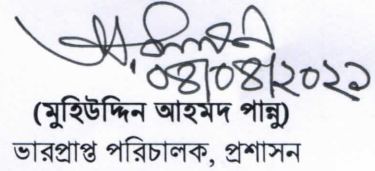 ০৪/০৪/২০২১
(মুহিউদ্দিন আহমদ পান্নু)
ভারপ্রাপ্ত পরিচালক, প্রশাসন